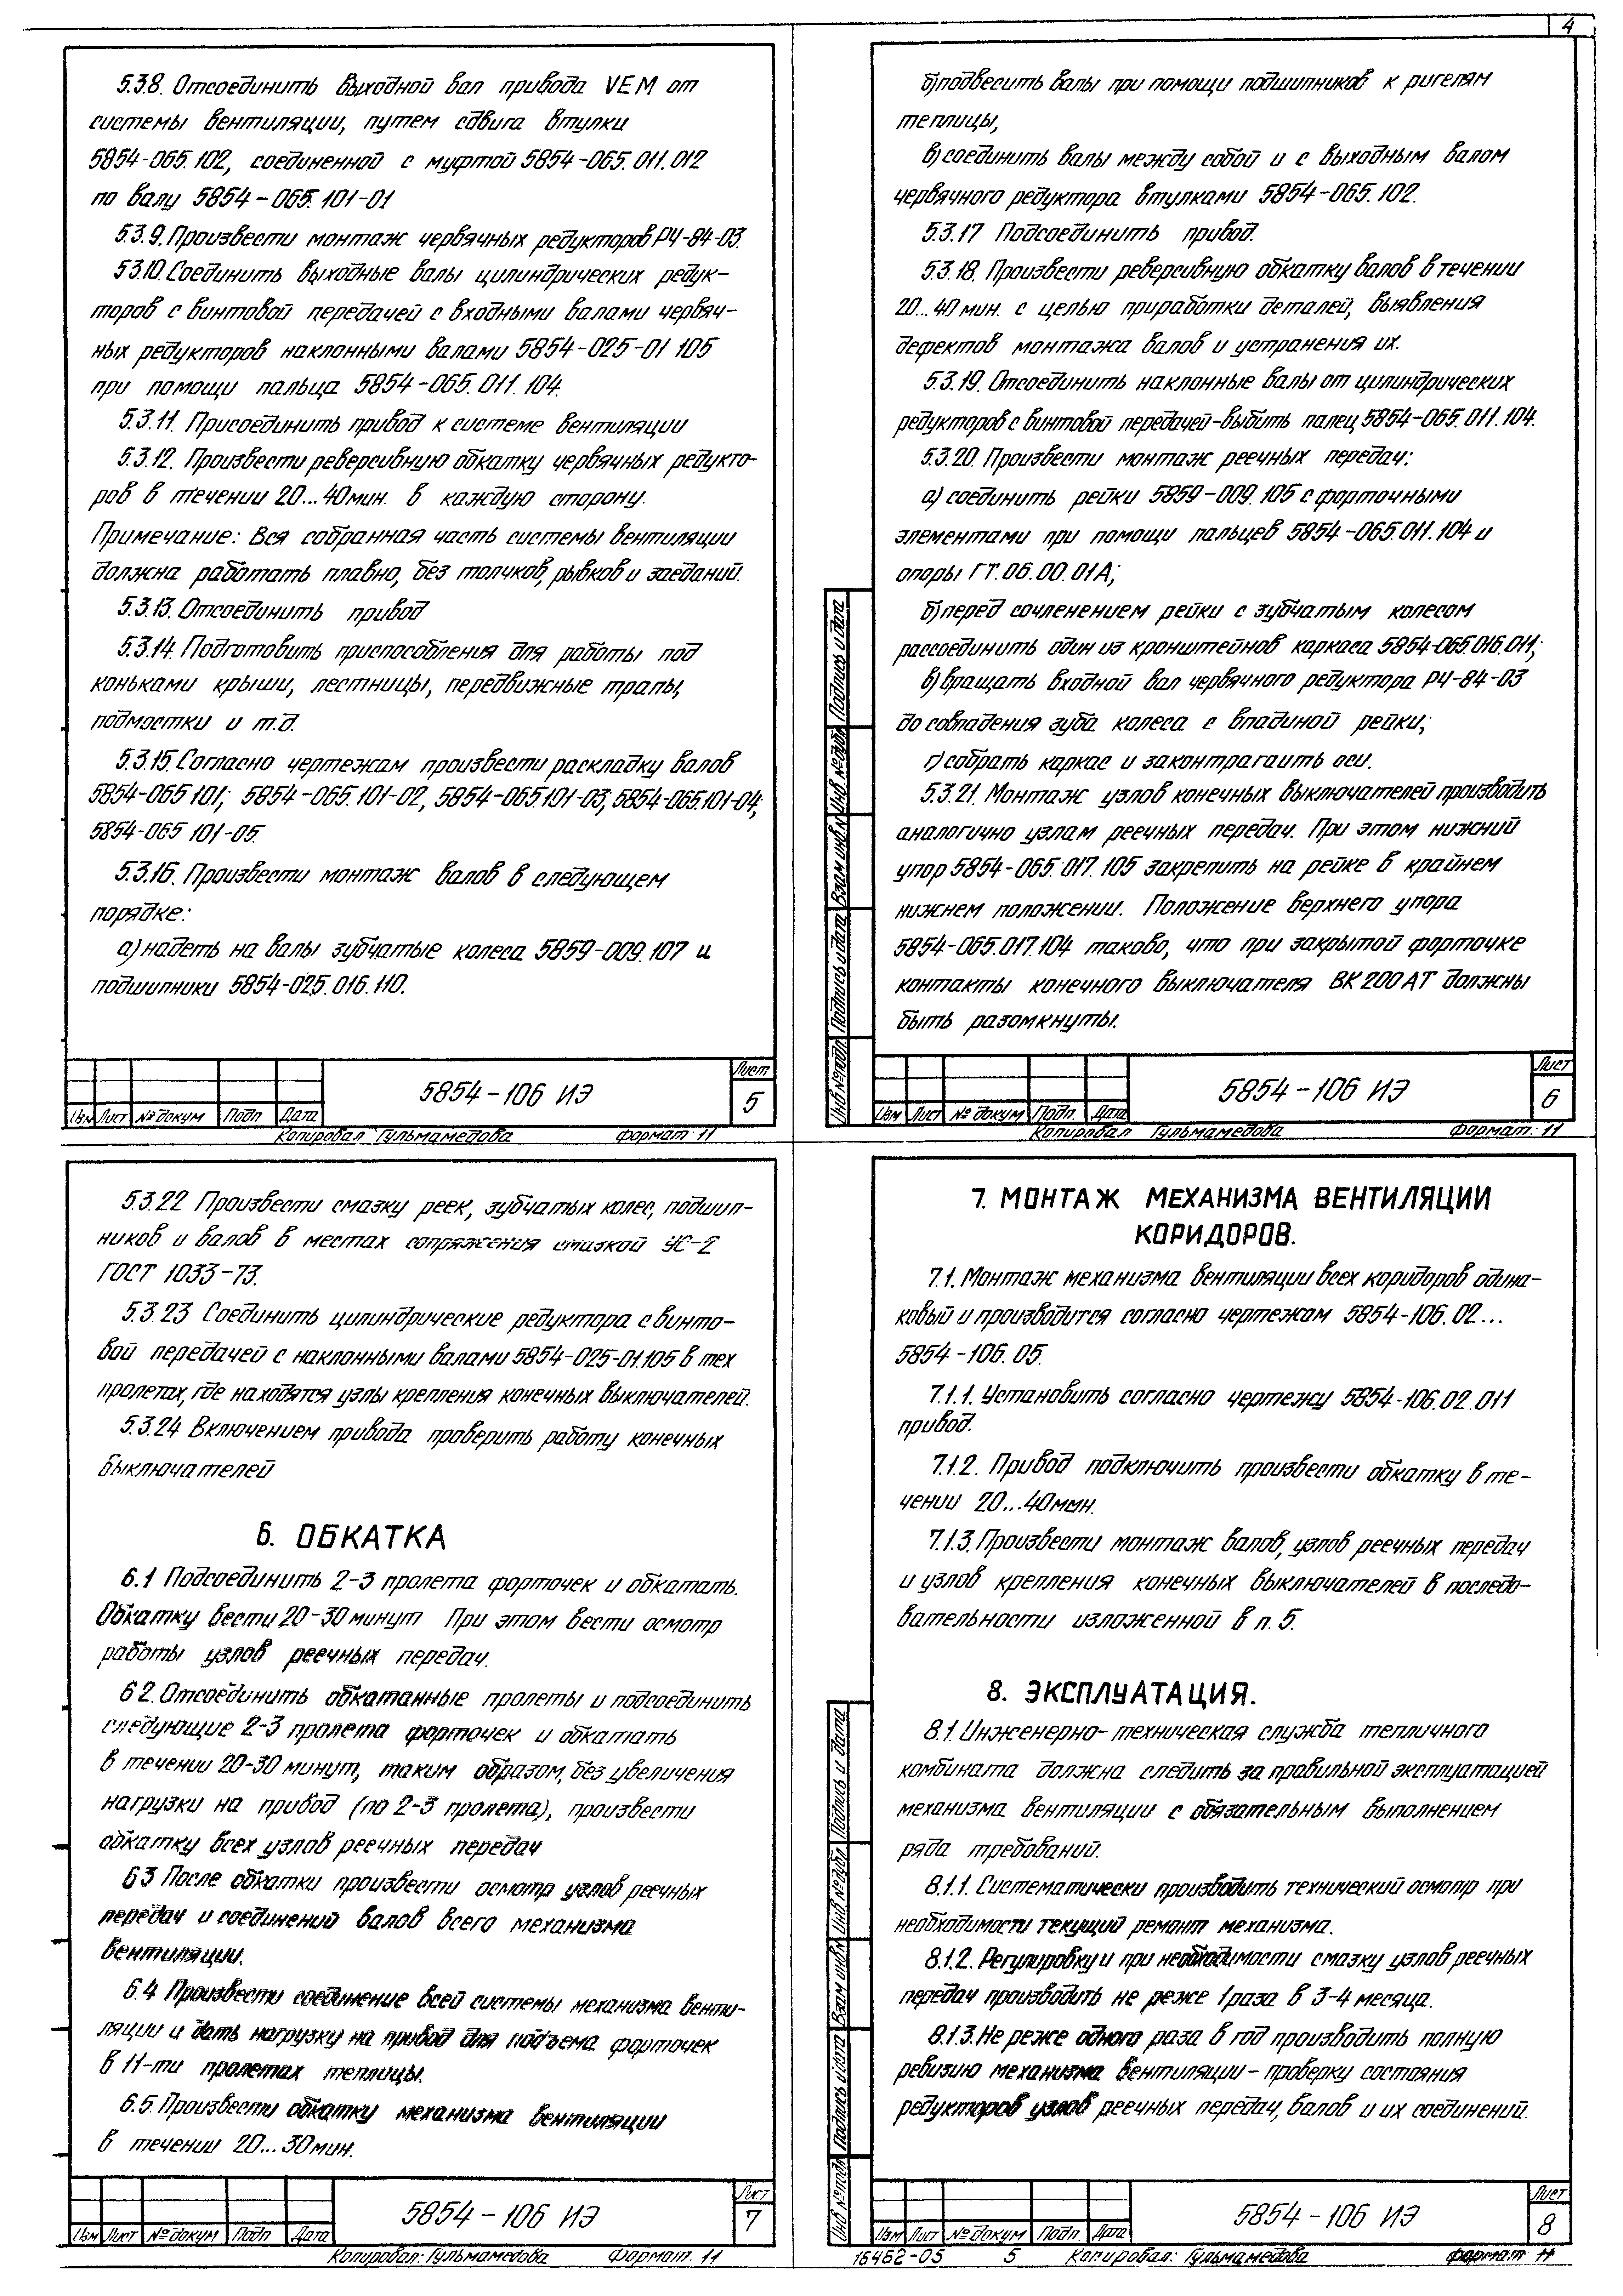 4
5.3.8. Отсоединить выходной вал привода VEM от
системы вентиляции, путем сдвига втулки
5854-065.102, соединенной с муфтой 5854-065.011.012
по валу 5854-065.101-01
5.3.9. Произвести монтаж червячных редукторов РЧ-84-03.
5.3.10. Соединить выходные валы цилиндрических редук-
торов с винтовой передачей с входными валами червяч-
ных редукторов наклонными валами 5854-025-01 105
при помощи пальца 5854-065.011.104.
5.3.11. Присоединить привод к системе вентиляции
5.3.12. Произвести реверсивную обкатку червячных редукто-
ров в течении 20...40 мин. в каждую сторону.
Примечание: Вся собранная часть системы вентиляции
должна работать плавно, без толчков, рывков и заеданий.
5.3.13. Отсоединить привод
5.3.14. Подготовить приспособления для работы под
коньками крыши, лестницы, передвижные трапы,
подмостки и т.д.
5.3.15. Согласно чертежам произвести раскладку валов
5854-065 101; 5854-065.101-02, 5854-065101-03; 5854-065.101-04;
5854-065 101-05.
5.3.16. Произвести монтаж валов в следующем
порядке:
а) надеть на валы зубчатые колеса 5859-009.107 и
подшипники 5854-025.016.110.
Изм Лист № докум Подп Дата
5854-106 ИЭ
Лист
5
Копировал Гульмамедова Формат 11
б) подвесить валы при помощи подшипников к ригелям
теплицы,
в) соединить валы между собой и с выходным валом
червячного редуктора втулками 5854-065.102.
5.3.17 Подсоединить привод.
5.3.18. Произвести реверсивную обкатку валов в течении
20...40 мин. с целью приработки деталей, выявления
дефектов монтажа валов и устранения их.
5.3.19. Отсоединить наклонные валы от цилиндрических
редукторов с винтовой передачей-выбить палец 5854-065.011.104.
5.3.20. Произвести монтаж реечных передач:
а) соединить рейки 5859-009.105 с форточными
элементами при помощи пальцев 5854-065.011.104 и
опоры ГТ.06.00.01А;
б) перед сочленением рейки с зубчатым колесом
рассоединить один из кронштейнов каркаса 5854-065.016.011;
в) вращать входной вал червячного редуктора РЧ-84-03
до совпадения зуба колеса с впадиной рейки;
г) собрать каркас и законтрагаить оси.
5.3.21. Монтаж узлов конечных выключателей производить
аналогично узлам реечных передач. При этом нижний
упор 5854-065.017.105 закрепить на рейке в крайнем
нижнем положении. Положение верхнего упора
5854-065.017.104 таково, что при закрытой форточке
контакты конечного выключателя ВК 200 АТ должны
быть разомкнуты.
Инв № подл. Подпись и дата Взам инв. № Инв № дубл. Подпись и дата
Изм Лист № докум Подп. Дата
5854-106 ИЭ
Лист
6
Копировал Гульмамедова Формат. 11
5.3.22 Произвести смазку реек, зубчатых колес, подшип-
ников и валов в местах сопряжения смазкой УС-2
ГОСТ 1033-73.
5.3.23 Соединить цилиндрические редуктора с винто-
вой передачей с наклонными валами 5854-025-01.105 в тех
пролетах, где находятся узлы крепления конечных выключателей.
5.3.24 Включением привода проверить работу конечных
выключателей
6. ОБКАТКА
6.1 Подсоединить 2-3 пролета форточек и обкатать.
Обкатку вести 20-30 минут При этом вести осмотр
работы узлов реечных передач.
6 2. Отсоединить обкатанные пролеты и подсоединить
следующие 2-3 пролета форточек и обкатать
в течении 20-30 минут, таким образом, без увеличения
нагрузки на привод (по 2-3 пролета), произвести
обкатку всех узлов реечных передач
6 3 После обкатки произвести осмотр узлов реечных
передач и соединений валов всего механизма
вентиляции.
6.4 Произвести соединение всей системы механизма венти-
ляции и дать нагрузку на привод для подъема форточек
в 11-ти пролетах теплицы.
6.5 Произвести обкатку механизма вентиляции
в течении 20...30 мин.
Изм Лист № докум Подп Дата
5854-106 ИЭ
Лист
7
Копировал: Гульмамедова Формат. 11
7. МОНТАЖ МЕХАНИЗМА ВЕНТИЛЯЦИИ
КОРИДОРОВ.
7.1. Монтаж механизма вентиляции всех коридоров одина-
ковый и производится согласно чертежам 5854-106.02...
5854-106.05.
7.1.1. Установить согласно чертежу 5854-106.02.011
привод.
7.1.2. Привод подключить произвести обкатку в те-
чении 20...40 мин.
7.1.3. Произвести монтаж валов, узлов реечных передач
и узлов крепления конечных выключателей в последо-
вательности изложенной в п. 5.
8. ЭКСПЛУАТАЦИЯ.
8.1. Инженерно-техническая служба тепличного
комбината должна следить за правильной эксплуатацией
механизма вентиляции с обязательным выполнением
ряда требований.
8.1.1. Систематически производить технический осмотр при
необходимости текущий ремонт механизма.
8.1.2. Регулировку и при необходимости смазку узлов реечных
передач производить не реже 1 раза в 3-4 месяца.
8.1.3. Не реже одного раза в год производить полную
ревизию механизма вентиляции - проверку состояния
редукторов узлов реечных передач, валов и их соединений.
Инв № подл Подпись и дата Взам инв № Инв № дубл Подпись и дата
Изм Лист № докум Подп. Дата
5854-106 ИЭ
Лист
8
16462-05 5 Копировал: Гульмамедова Формат 11